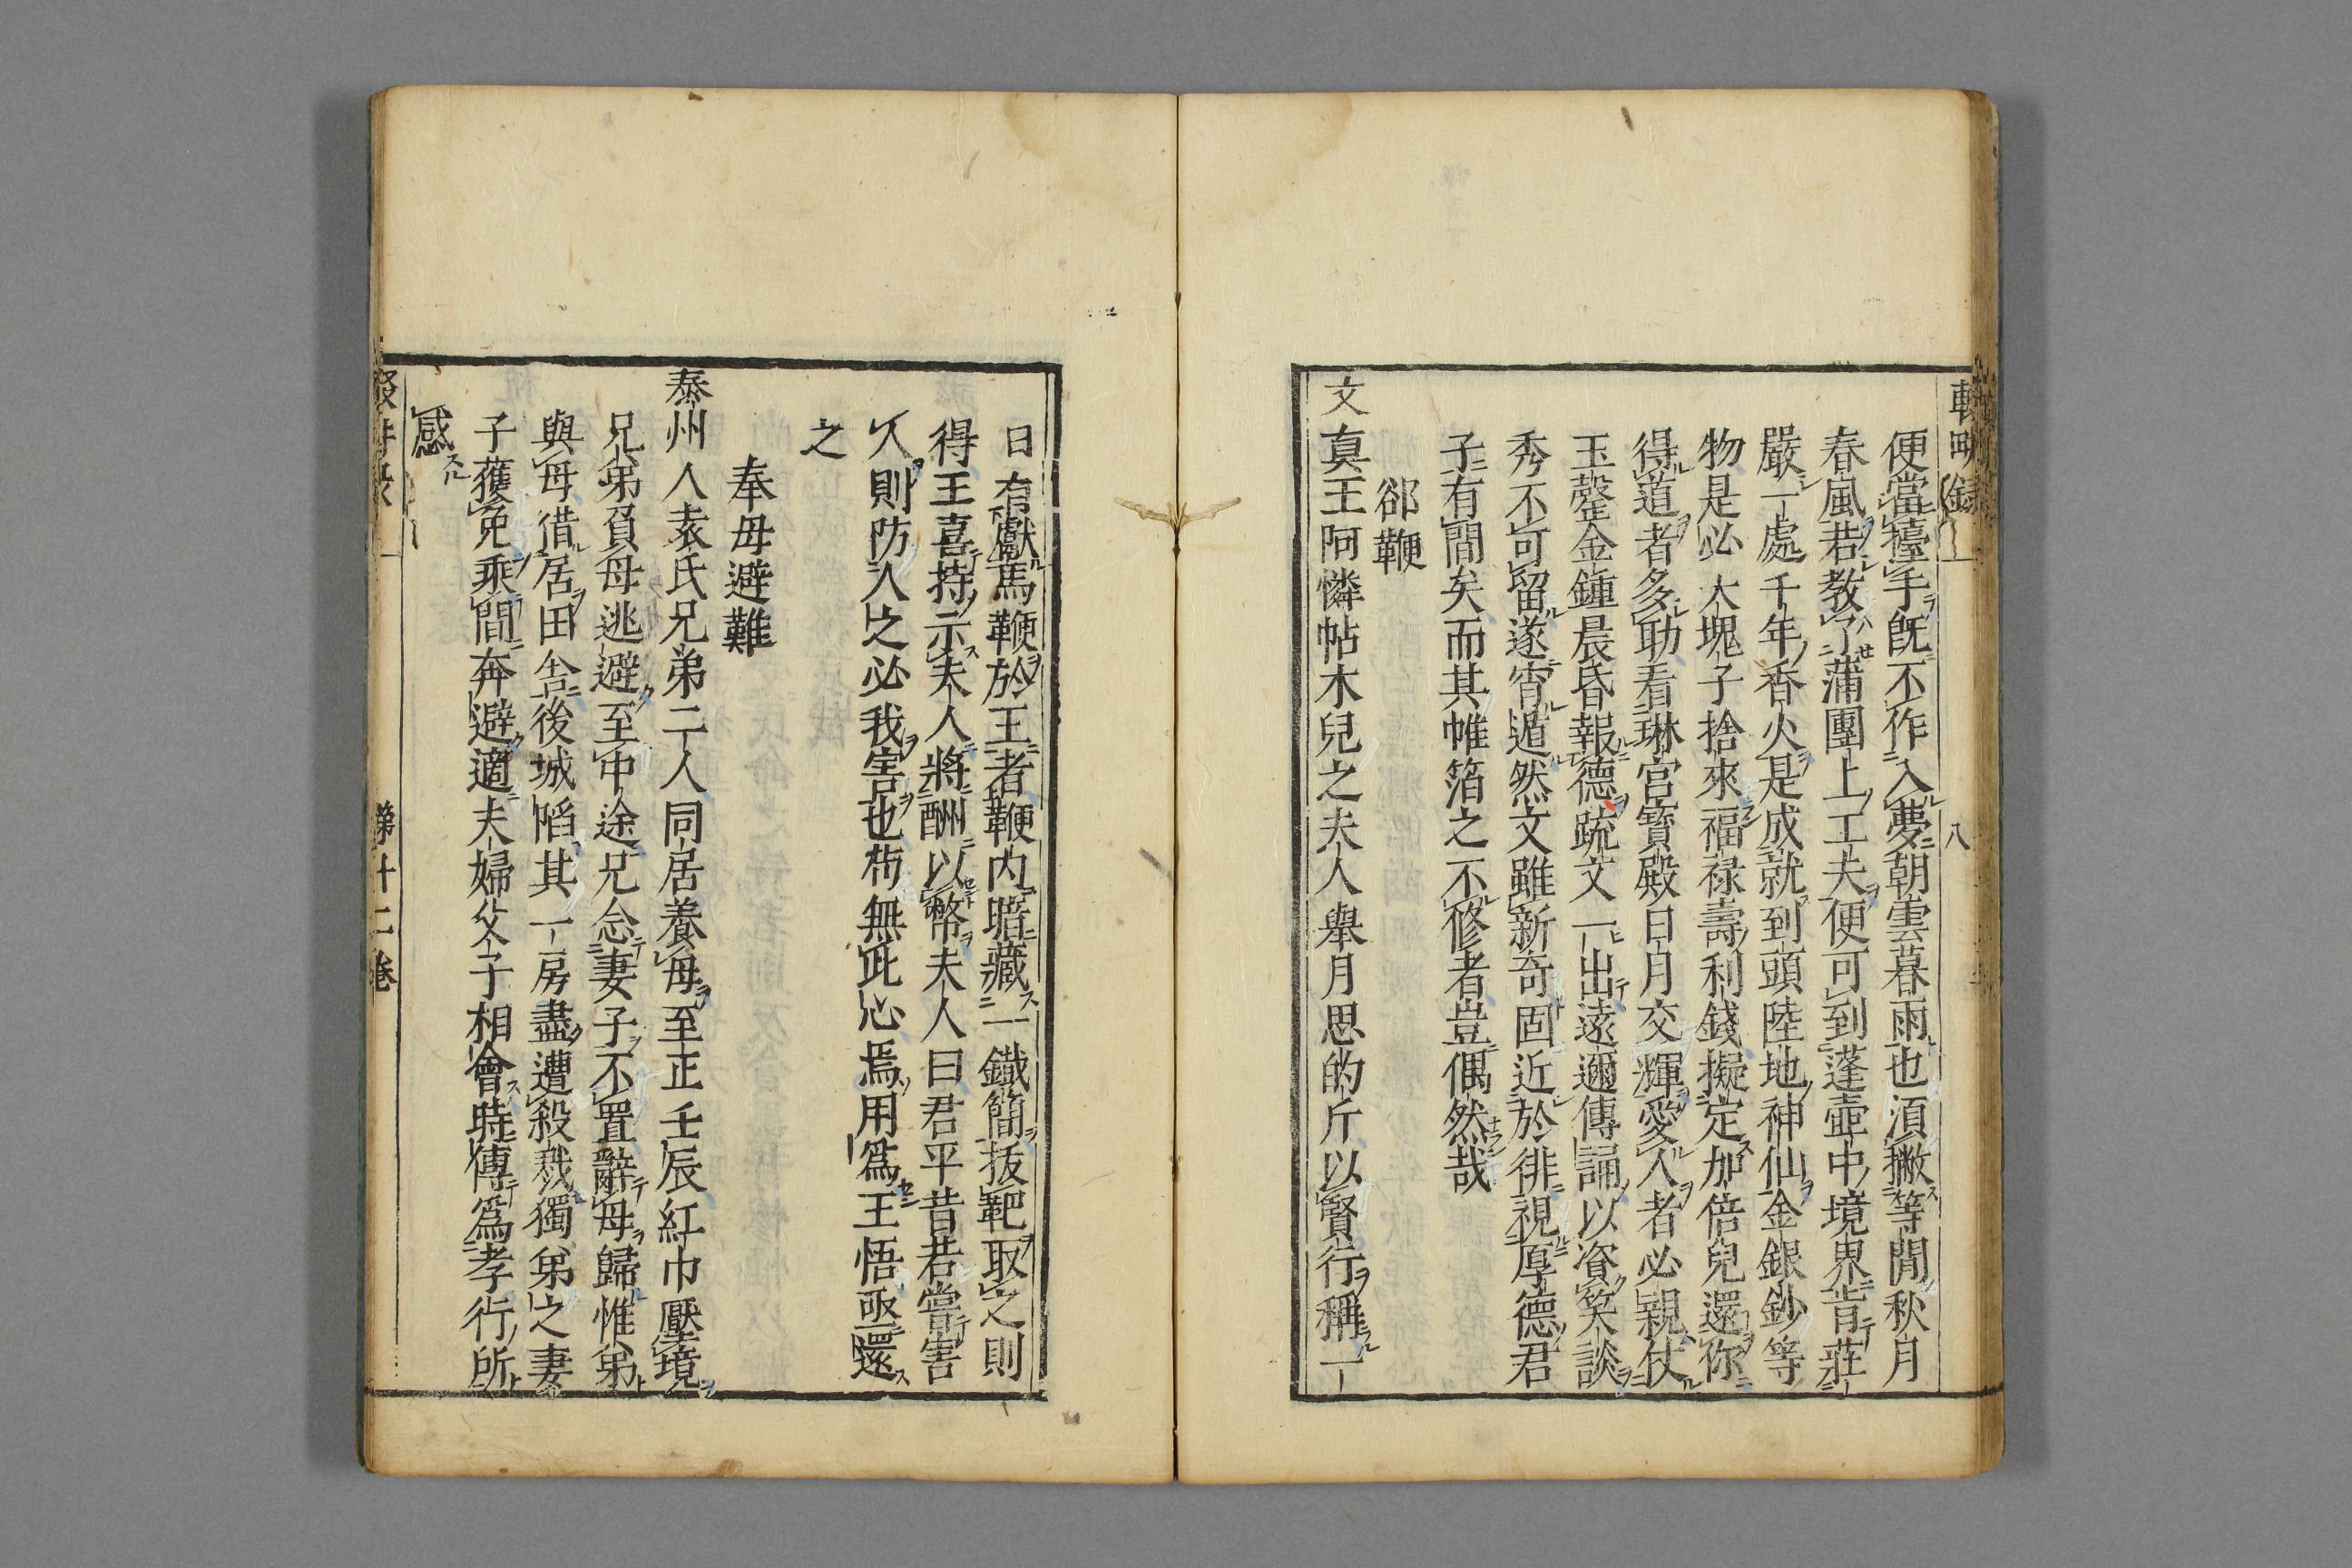 輟畊録
八
便當擡手既不作入夢朝雲暮雨也湏撇等閒秋月
春風若教了蒲團上工夫便可到蓬壺中境界肯莊
嚴一處千年香火是成就到頭陸地神仙金銀鈔等
物是必大塊子捨來福祿壽利錢擬定加倍兒還你
得道者多助看琳宫寶殿日月交輝愛人者必親仗
玉罄金鍾晨昏報德疏文一出遠邇傳誦以資笑談
秀不可留遂宵遁然文雖新奇固近於徘視厚德君
子有間矣而其帷箔之不修者豈偶然哉
郤鞭
文真王阿憐帖木兒之夫人舉月思的斤以賢行稱一
日有獻馬鞭於王者鞭内暗藏一鐵簡拔靶取之則
得王喜持示夫人將酬以幣夫人曰君平昔若嘗害
人則防人之必我害也苟無此心焉用為王悟亟還
之
奉母避難
泰州人袁氏兄弟二人同居養母至正壬辰紅巾壓境
兄弟負母逃避至中途兄念妻子不置辭母歸惟弟
與母借居田舎後城䧟其一房盡遭殺戮獨弟之妻
子獲免乘間奔避適夫婦父子相會時傳為孝行所
感
第十二卷